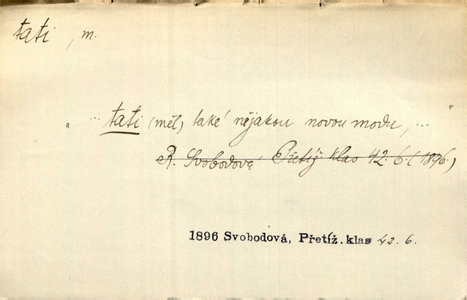 tati, m.
"... tati (měl) také nějakou novou modu, ..."
R. Svobodové Přetíž. klas 42. 6 (1896)
1896 Svobodová, Přetíž. klas 42. 6.